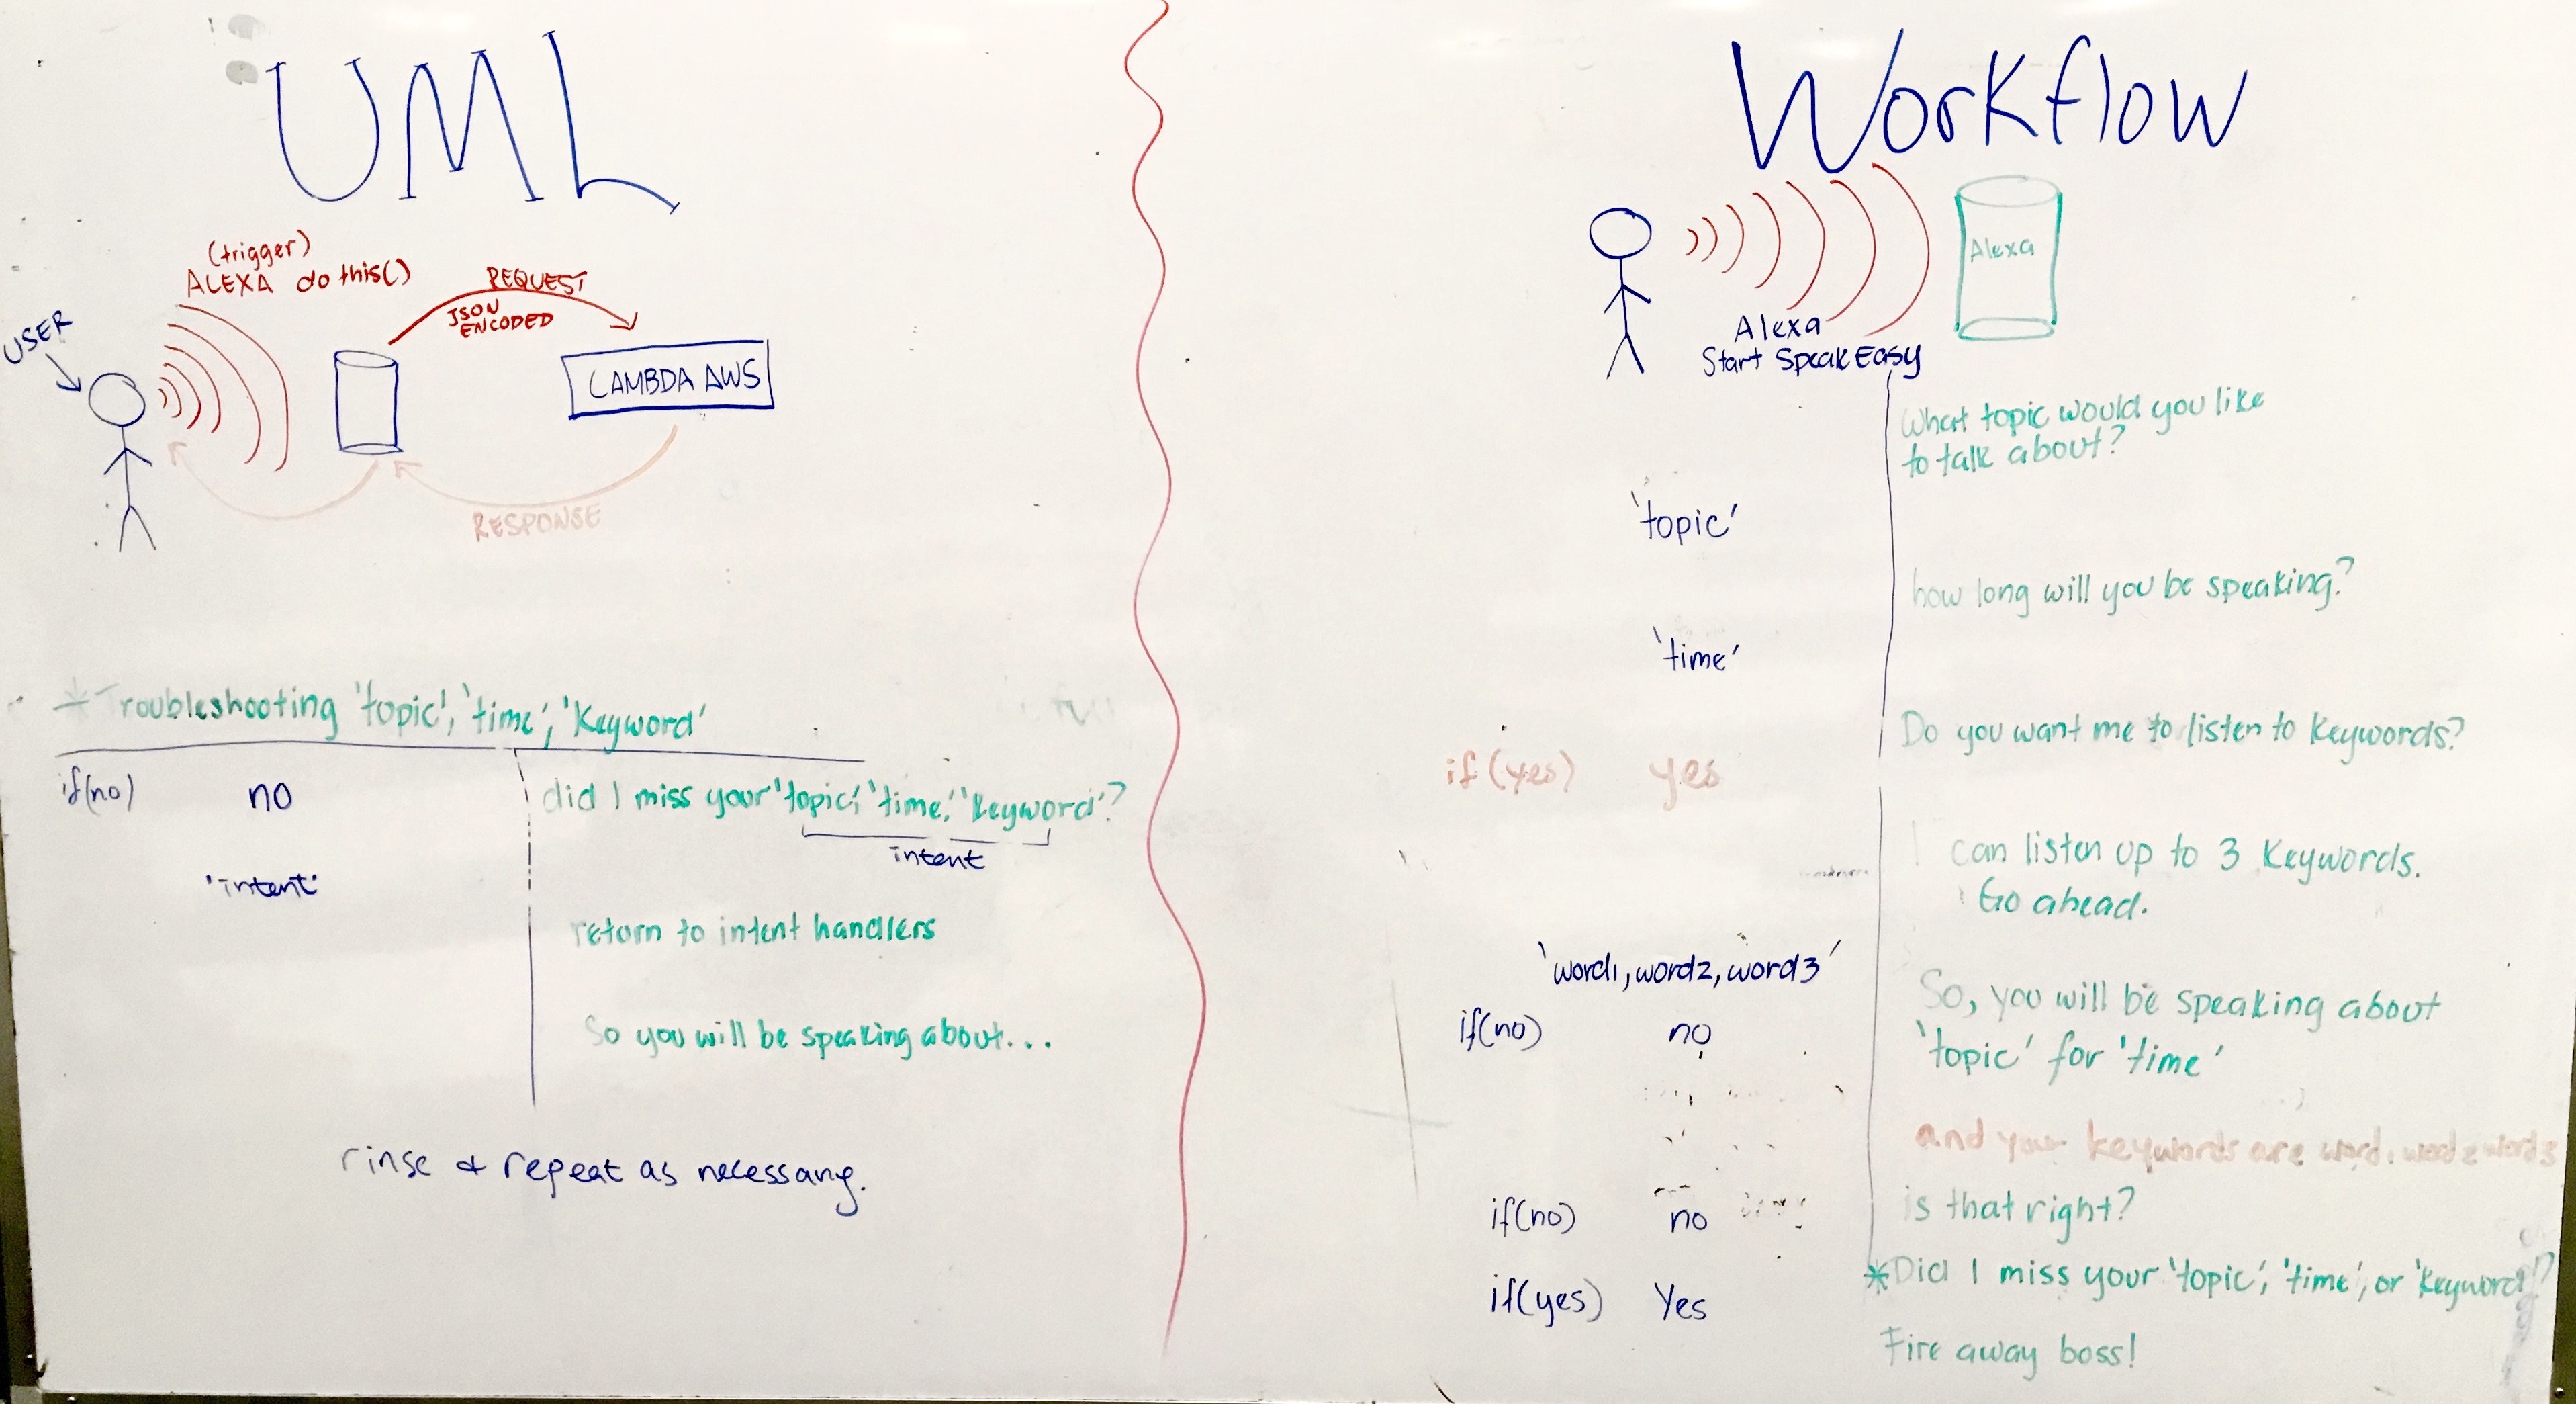 UML
(trigger)
ALEXA do this()
REQUEST
JSON
ENCODED
USER
LAMBDA AWS
RESPONSE
* Troubleshooting 'topic', 'time', 'Keyword'
if(no) no did I miss your 'topic', 'time', 'Keyword'?
intent
'intent'
return to intent handlers
So you will be speaking about...
rinse & repeat as necessary.
Workflow
Alexa
Alexa
Start SpeakEasy
What topic would you like
to talk about?
'topic'
how long will you be speaking?
'time'
Do you want me to listen to Keywords?
if (yes) yes
I can listen up to 3 Keywords.
Go ahead.
'word1, word2, word3'
if(no) no
So, you will be speaking about
'topic' for 'time'
and your keywords are word1 word2 word3
is that right?
if(no) no
*Did I miss your 'topic', 'time', or 'Keyword'?
if(yes) Yes
Fire away boss!